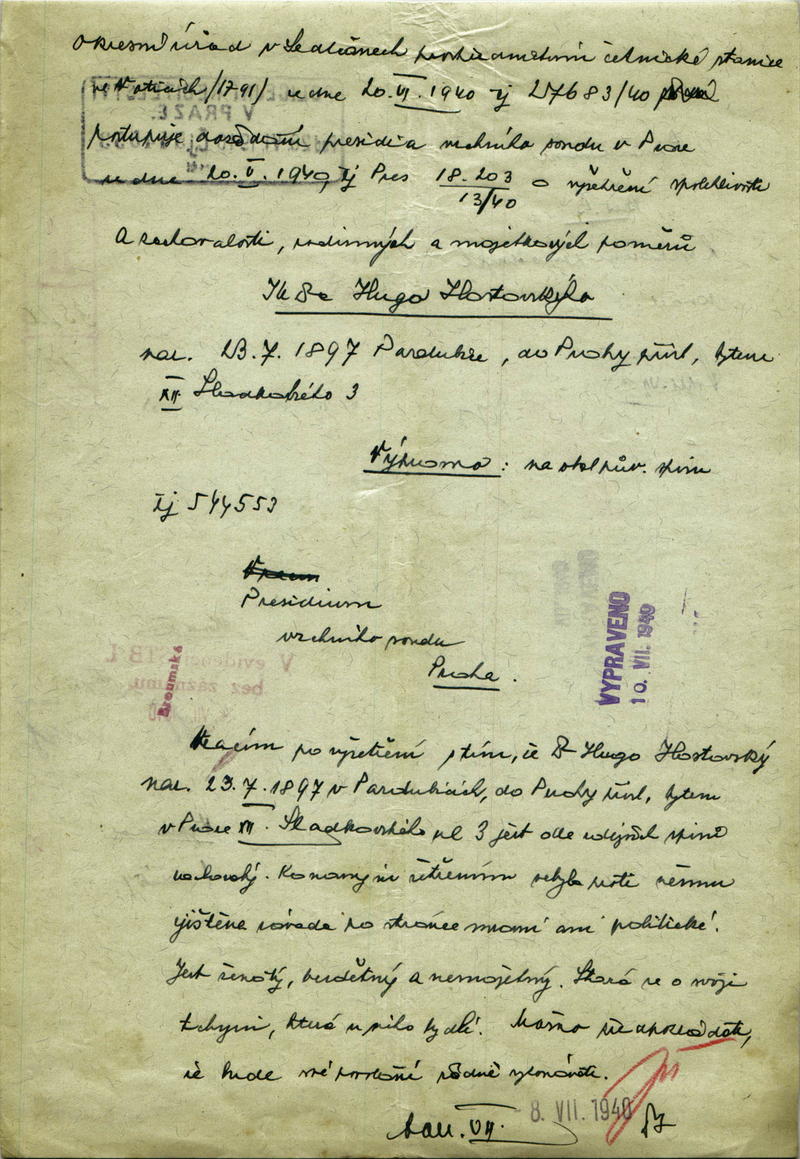 Okresní úřad v Sedlčanech prostřednictvím četnické stanice
ve Voticích /1791/ ze dne 20.VI.1940 čj 27683/40
postupuje presidia vrchního soudu v Praze
V PRAZE
ze dne 20.V.1940, čj Pres 18.203
13/40 o vyšetření spolehlivosti
a zachovalosti, rodinných a majetkových poměrů
JUDr Hugo Hostovského
nar. 23.7.1897 Pardubice, do Prahy přísl, bytem
XII Sladkovského 3
Výpravna: na
čj 544553
Presidium
vrchního soudu
Praha.
VYPRAVENO
10. VII. 1940
V evidenci
bez záznamu
Broumská
po vyšetření s tím, že Dr Hugo Hostovský
nar. 23.7.1897 v Pardubicích, do Prahy přísl, bytem
v Praze XII. Sladkovského ul 3 jest dle
zachovalý. Konaným šetřením nebyla proti němu
zjištěna závada po stránce mravní ani politické.
Jest ženatý, bezdětný a nemajetný. Stará se o svoji
tchyni, která u něho bydlí. Možno předpokládati,
že bude své povolání řádně vykonávati.
8. VII. 1940
VII.